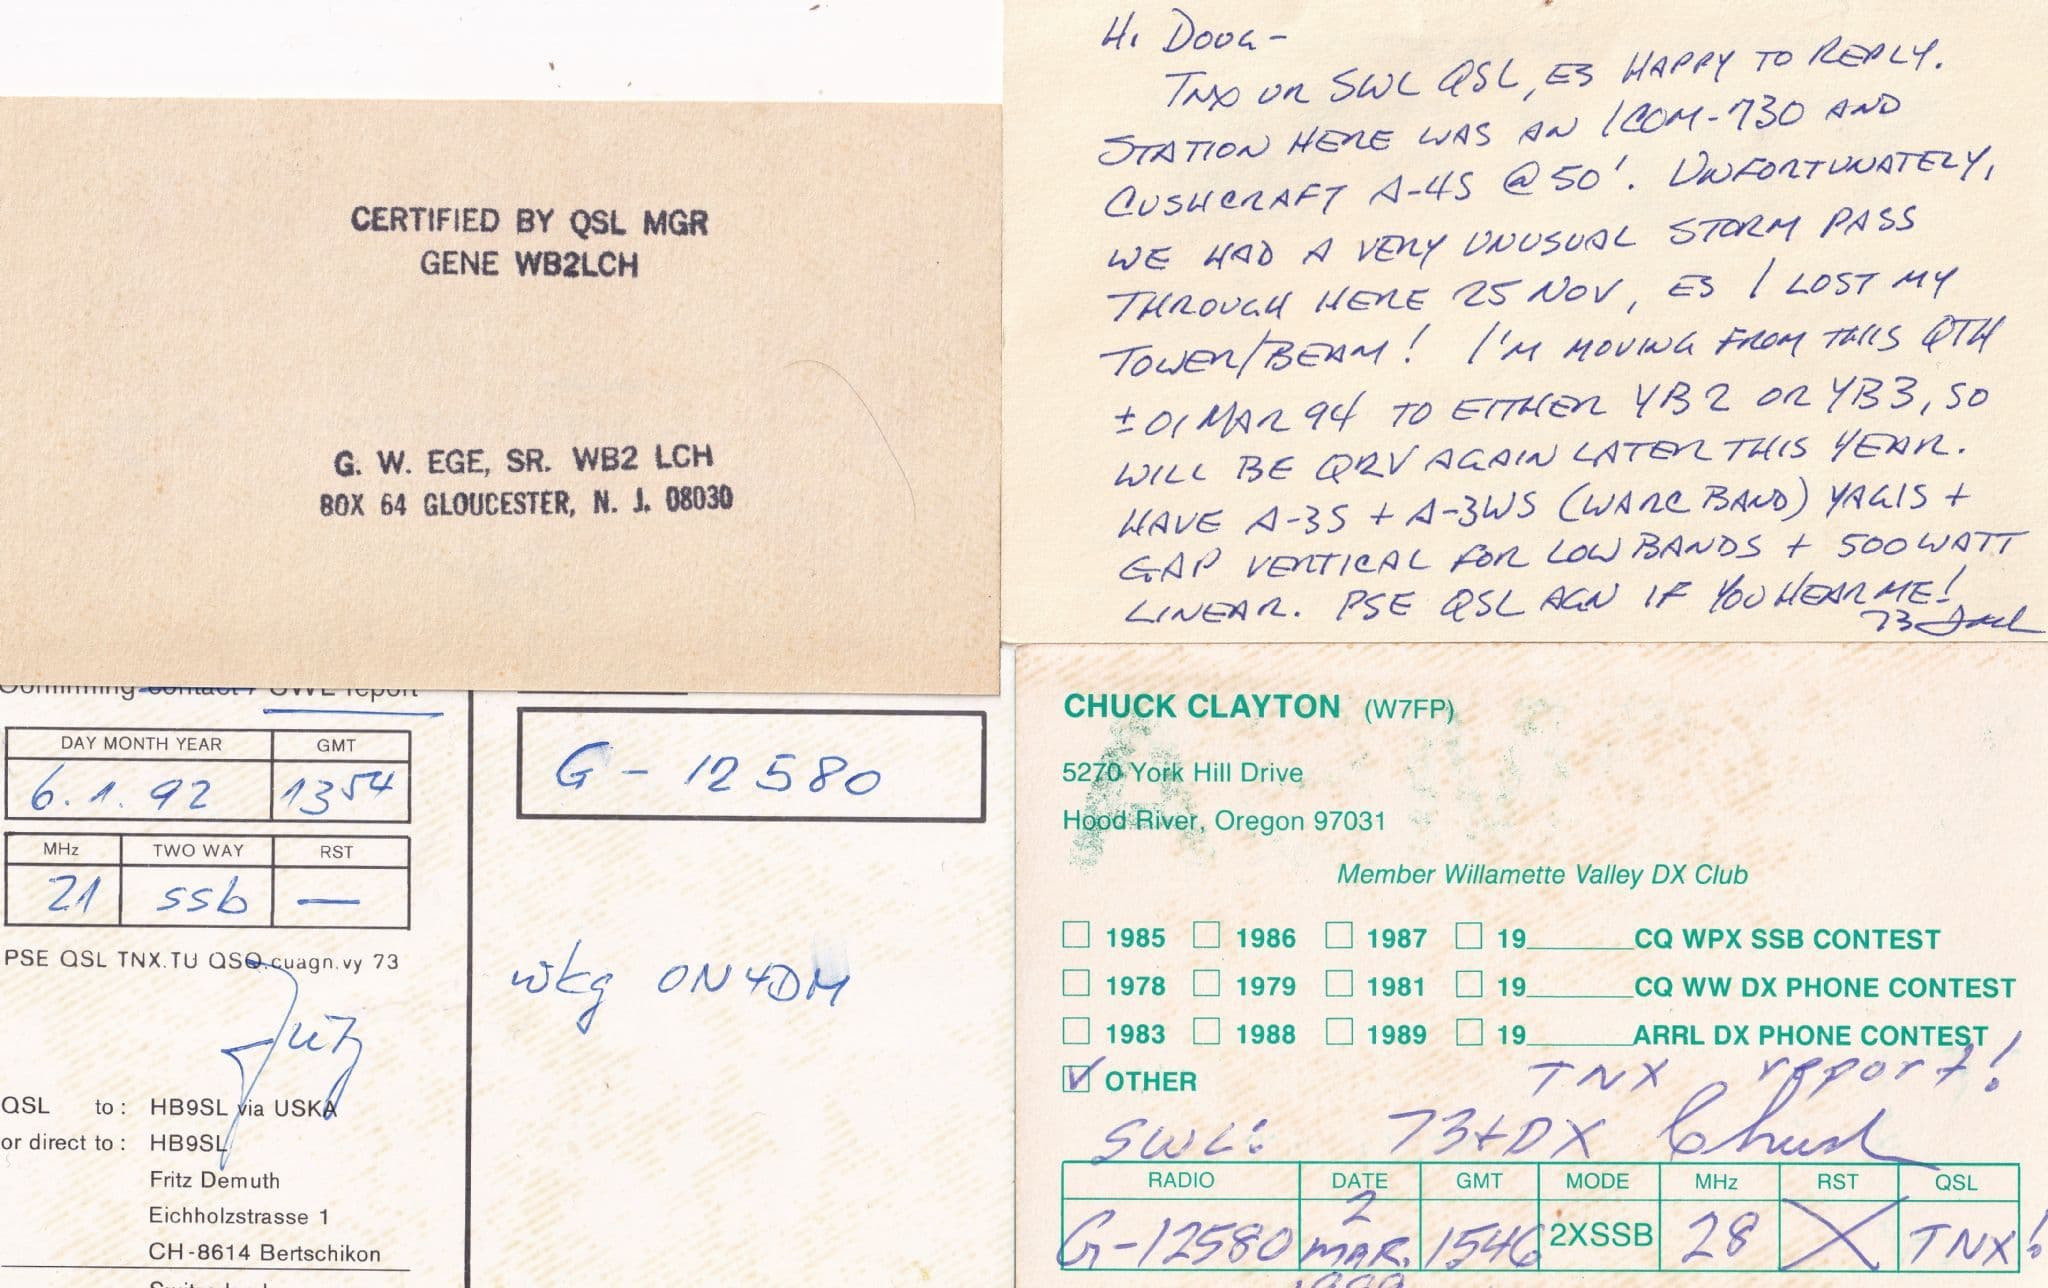 CERTIFIED BY QSL MGR
GENE WB2LCH
G. W. EGE, SR. WB2 LCH
BOX 64 GLOUCESTER, N. J. 08030
HI DOUG-
TNX UR SWL QSL, ES HAPPY TO REPLY.
STATION HERE WAS AN ICOM-730 AND
CUSHCRAFT A-4S @ 50'. UNFORTUNATELY,
WE HAD A VERY UNUSUAL STORM PASS
THROUGH HERE 25 NOV, ES I LOST MY
TOWER/BEAM! I'M MOVING FROM THIS QTH
± 01 MAR 94 TO EITHER YB2 OR YB3, SO
WILL BE QRV AGAIN LATER THIS YEAR.
HAVE A-3S + A-3WS (WARC BAND) YAGIS +
GAP VERTICAL FOR LOW BANDS + 500 WATT
LINEAR. PSE QSL AGN IF YOU HEAR ME!
73
Confirming contact / SWL report
DAY MONTH YEAR GMT
6.1.92 1354
MHz TWO WAY RST
21 ssb —
PSE QSL TNX.TU QSO.cuagn.vy 73
Fritz
QSL to: HB9SL via USKA
or direct to: HB9SL
Fritz Demuth
Eichholzstrasse 1
CH-8614 Bertschikon
Switzerland
G-12580
wkg ON4DM
CHUCK CLAYTON (W7FP)
5270 York Hill Drive
Hood River, Oregon 97031
Member Willamette Valley DX Club
1985 1986 1987 19______CQ WPX SSB CONTEST
1978 1979 1981 19______CQ WW DX PHONE CONTEST
1983 1988 1989 19______ARRL DX PHONE CONTEST
OTHER TNX report!
SWL! 73+DX Chuck
RADIO DATE GMT MODE MHz RST QSL
G-12580 2 MAR. 1546 2XSSB 28 X TNX!